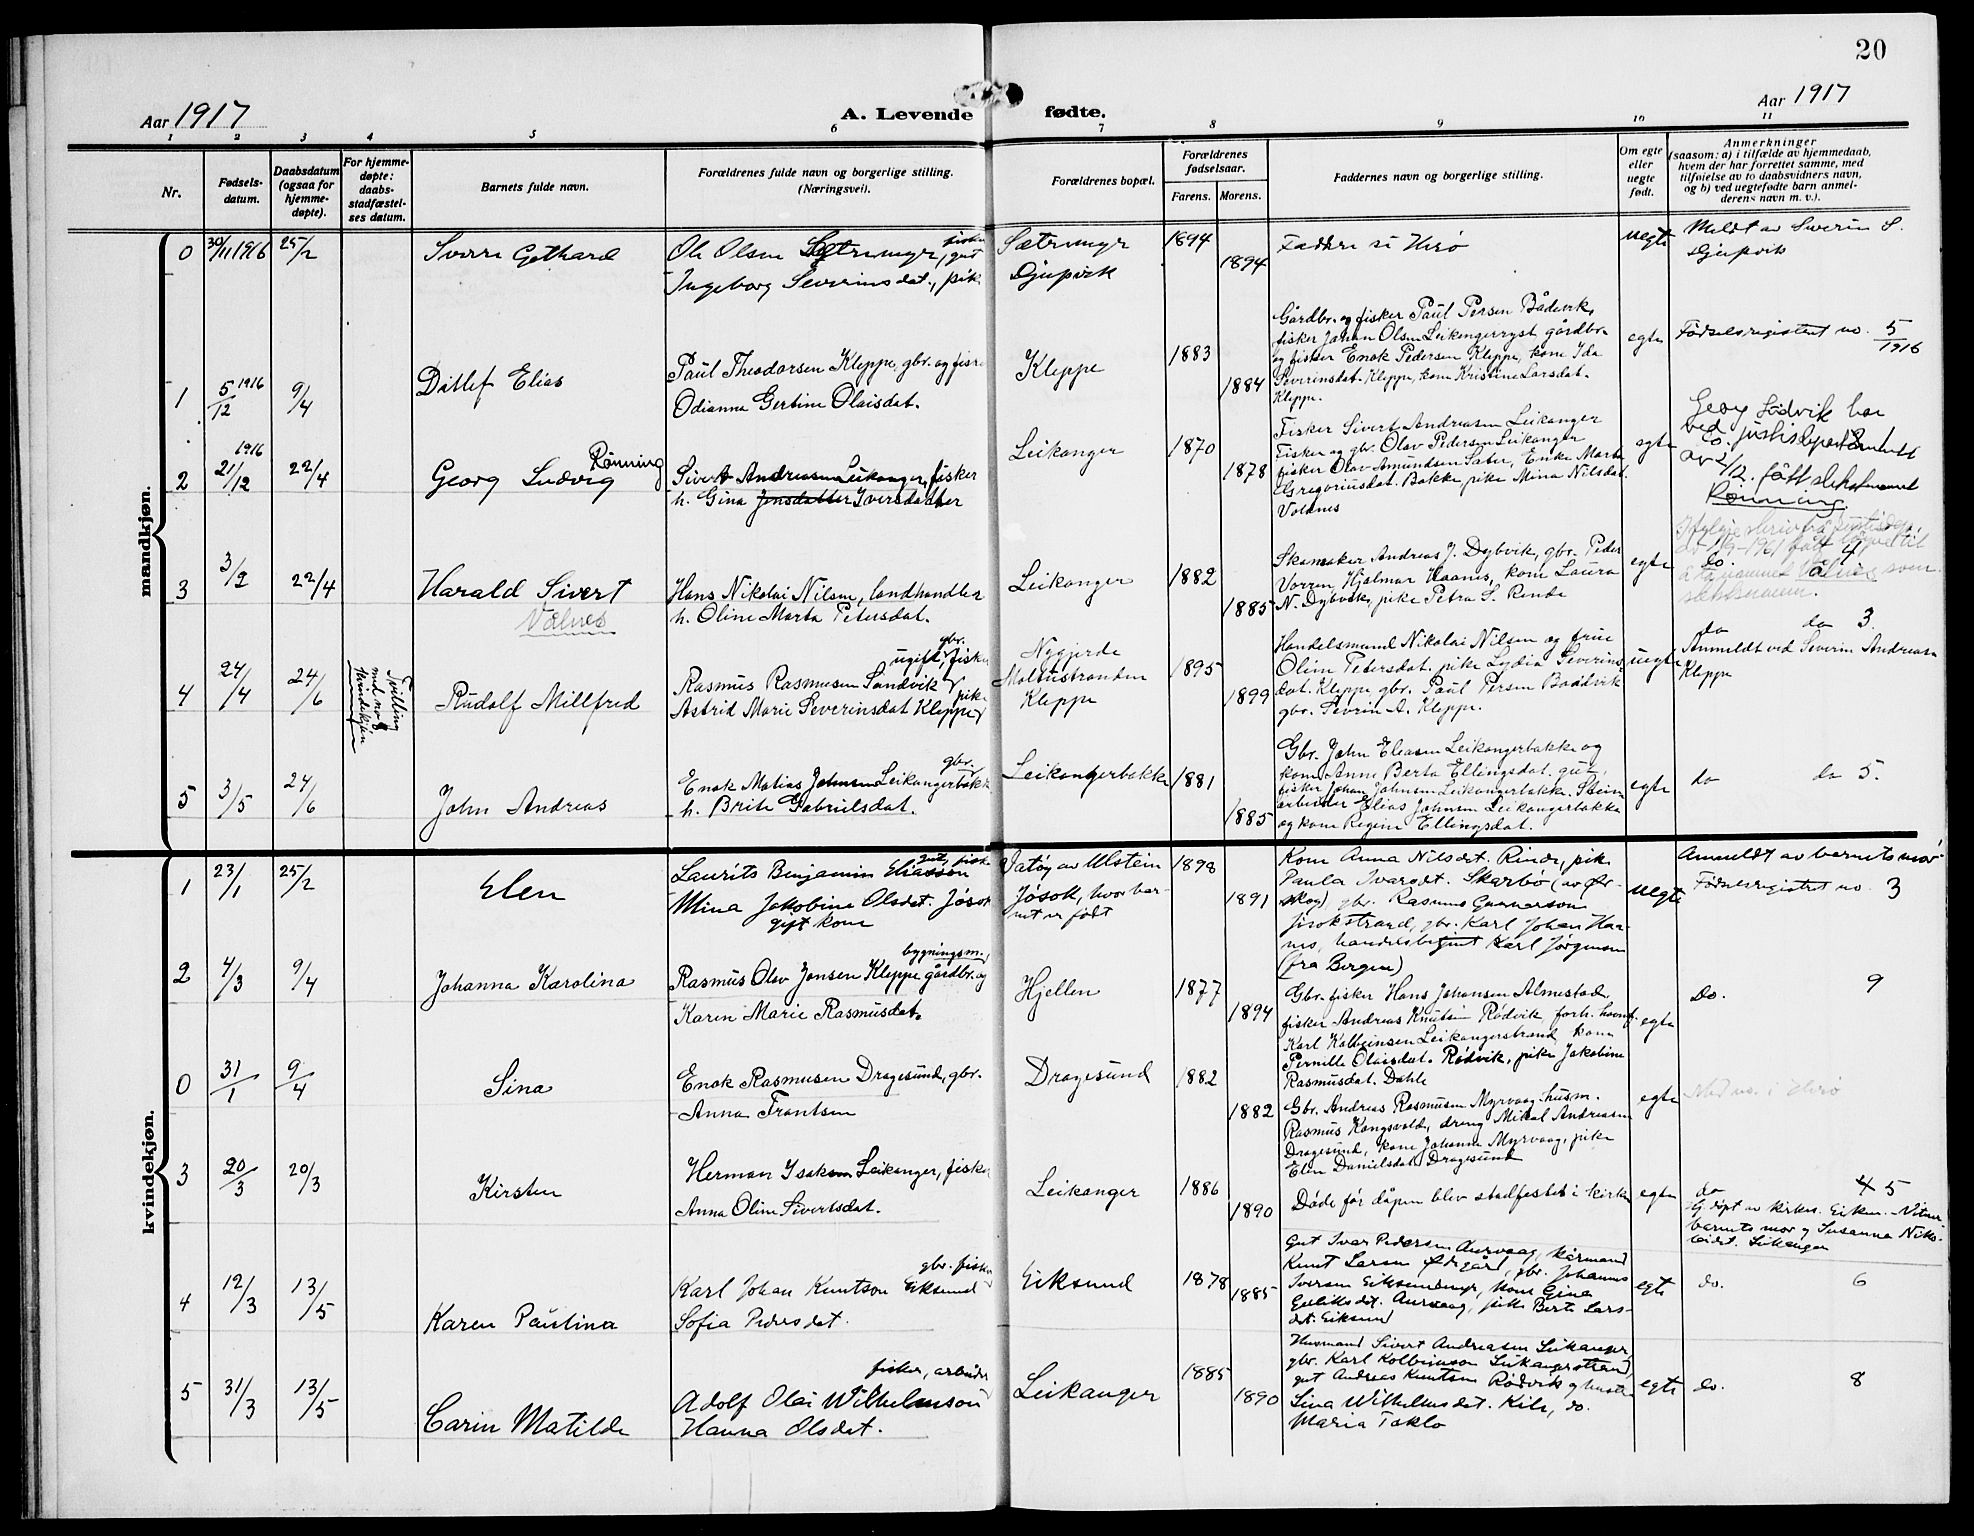 20
Aar 1917
A. Levende fødte.
Aar 1917
1 2 3 4 5 6 7 8 9 10 11
Nr.
Fødsels-
datum.
Daabsdatum
(ogsaa for
hjemme-
døpte).
For hjemme-
døpte:
daabs-
stadfæstel-
ses datum.
Barnets fulde navn.
Forældrenes fulde navn og borgerlige stilling.
(Næringsvei).
Forældrenes bopæl.
Forældrenes
fødselsaar.
Farens. Morens.
Faddernes navn og borgerlige stilling.
Om egte
eller
uegte
født.
Anmerkninger
(saasom: a) i tilfælde av hjemmedaab,
hvem der har forrettet samme, med
tilføielse av to daabsvidners navn,
og b) ved uegtefødte barn anmel-
derens navn m. v.).
mandkjøn.
0 30/11 1916 25/2
Sverre Gothard
Ole Olsen Sætremyr, fisker, gut
Ingeborg Severinsdat., pike
Sætremyr
Djupvik
1894
1894
Faddere se Herø
uegte
Meldt av Severin S.
Djupvik
1 5/12 1916 9/4
Ditlef Elias
Paul Theodorsen Kleppe, gbr. og fisker
Odianna Gertine Olaisdat.
Kleppe
1883
1884
Gårdbr. og fisker Paul Persen Bådsvik,
fisker Johan Olsen Leikangerryst, gårdbr.
og fisker Enok Pedersen Kleppe, kone Ida
Severinsdat. Kleppe, kone Kristine Larsdat.
Kleppe.
egte
Fødselsregisteret no. 5/1916
2 1916 21/12 22/4
Georg Ludvig Rønning
Sivert Andreasen Leikanger, fisker
h. Gina Jonsdatter Iversdatter
Leikanger
1870
1878
Fisker Sivert Andreasen Leikanger
Fisker og gbr. Olav Pedersen Leikanger
fisker Olav Amundsen Sæter, Enke Marte
Gregoriusdat. Bakke, pike Mina Nilsdat.
Voldnes
egte
Georg Ludvik har
ved
Do. 1
av 2/12. fått slektsnavnet
Rønning.
3 3/2 22/4
Harald Sivert
Valnes
Hans Nikolai Nilsen, landhandler
h. Oline Marta Petersdat.
Leikanger
1882
1885
Skomaker Andreas J. Dybvik, gbr. Peder
Vorren, Hjalmar Haanes, kone Laura
N. Dybvik, pike Petra S. Rinde
egte
Do. 4
4 24/4 24/6
Tvilling
med no 8,
kvindekjøn
Rudolf Millfred
ugift, gbr. fisker
Rasmus Rasmusen Sandvik
Astrid Marie Severinsdat Kleppe, pike
Nygjerde
Moltustranden
Kleppe
1895
1899
Handelsmand Nikolai Nilsen og frue
Oline Petersdat. pike Lydia Severins-
dat. Kleppe gbr. Paul Persen Baadsvik
gbr. Sevrin A. Kleppe.
uegte
do do 3.
Anmeldt ved Severin Andreasen
Kleppe
5 3/5 24/6
John Andreas
gbr.
Enok Matias Johnsen Leikangerbakk
h. Brite Gabrielsdat.
Leikangerbakke
1881
1885
Gbr. John Eliasen Leikangerbakke og
kone Anne Berta Ellingsdat. gut,
fisker Johan Johnsen Leikangerbakke. Stein
arbeider Elias Johnsen Leikangerbakke
og kone Regine Ellingsdat.
egte
do do 5.
kvindekjøn.
1 23/1 25/2
Elen
gut, fisker
Laurits Benjamin Eliassøn
Mina Jakobine Olsdet. Jøsok
gift kone
Vatøy av Ulstein
Jøsok, hvor bar-
net er født
1898
1891
Kone Anna Nilsdet. Rinde, pike
Paula Ivarsdt. Skarbø (av Ør-
skog) gbr. Rasmus Gunnarson
Jøsokstrand, gbr. Karl Johan Haa-
nes, handelsbetjent Karl Jørgensen
(fra Bergen)
uegte
Anmeldt av barnets mor
Fødselsregistret no. 3
2 4/3 9/4
Johanna Karolina
bygningsm.
Rasmus Olav Jensen Kleppe gårdbr. og
Karen Marie Rasmusdat.
Hjellen
1877
1894
Gbr. fisker Hans Johansen Almestad,
fisker Andreas Knutsen Rødvik, forh.
Karl Kolbeinsen Leikangerstrand, kone
Pernille Olaisdat. Rødvik, pike Jakobine
Rasmusdat. Dahle
egte
Do. 9
0 31/1 9/4
Sina
Enok Rasmusen Dragesund, gbr.
Anna Frantsen
Dragesund
1882
1882
Gbr. Andreas Rasmusen Myrvaag husm.
Rasmus Kongsvold, dreng Mikal Andreasen
Dragesund, kone Johanne Myrvaag, pike
Elen Danielsdat Dragesund
egte
Med no. i Herø
3 20/3 20/3
Kirsten
Herman Isaksen Leikanger, fisker
Anna Oline Sivertsdat.
Leikanger
1886
1890
Døde før dåpen blev stadfestet i kirken
egte
do 4 5
Gj. døpt av kirkes. Eiken. Vitner
barnets mor og Susanna Niko-
laidt. Leikanger
4 12/3 13/5
Karen Paulina
gbr. fisker
Karl Johan Knutson Eiksund
Sofia Pedersdet.
Eiksund
1878
1885
Gut Ivar Pedersen Aurvaag, kårmand
Knut Larsen Ødegård, gbr. Johannes
Iversen Eiksundmyr, kone Gina
Aurvaag, pike Berte Lars-
det. Eiksund
egte
do. 6
5 31/3 13/5
Carin Matilde
fisker, arbeider
Adolf Olai Wilhelmson
Hanna Olsdet.
Leikanger
1885
1890
Husmand Sivert Andreasen Leikanger,
gbr. Karl Kolbeinson Leikangerstrand,
gut Andreas Knutsen Rødvik og hustru
Lina Wilhelmsdet. Kile, do.
Maria Taklo
egte
do. 8